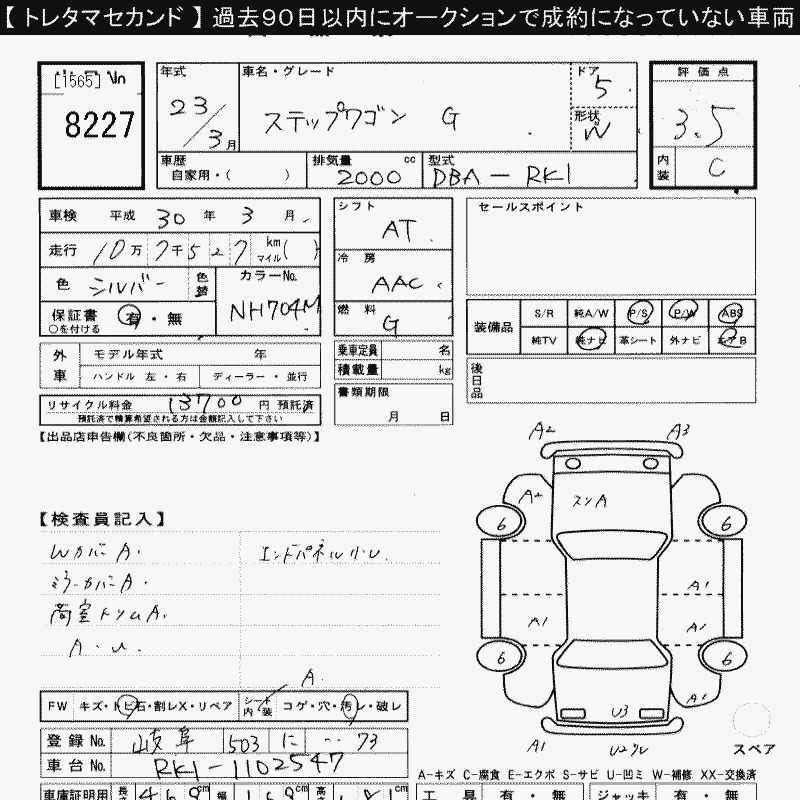 【 トレタマセカンド 】 過去90日以内にオークションで成約になっていない車両
[1565]
8227
年式
23/3月
車名・グレード
ステップワゴン G
ドア
5
形状
W
評価点
3.5
内装
C
車歴
自家用・( )
排気量 cc
2000
型式
DBA-RK1
車検 平成 30 年 3 月
走行 10万7千527 km マイル( )
色 シルバー 色替
カラーNo.
NH704M
保証書 有・無
○を付ける
シフト
AT
冷房
AAC
燃料
G
セールスポイント
装備品
S/R 純A/W P/S P/W ABS
純TV 純ナビ 革シート 外ナビ エアB
外車
モデル年式 年
ハンドル 左・右 ディーラー・並行
乗車定員 名
積載量 kg
書類期限
月 日
後日品
リサイクル料金 13700 円 預託済
預託済で精算希望される方は金額記入して下さい
【出品店申告欄(不良箇所・欠品・注意事項等)】
A2 A3
A2 スンA
6 6
A1
A1 A1
6 6
A1
U3
A1 U2
スペア
【検査員記入】
Wカバー A.
ミラーカバー A.
荷室トリム A.
A・U.
エンドパネル小U.
A.
FW キズ・トビ石・割レX・リペア
シート内装 コゲ・穴・汚レ・破レ
登録No. 岐阜 503 に ・・73
車台No. RK1-1102547
A-キズ C-腐食 E-エクボ S-サビ U-凹ミ W-補修 XX-交換済
車庫証明用 長さ 468cm 幅 168cm 高さ 181cm
工具 有・無 ジャッキ 有・無